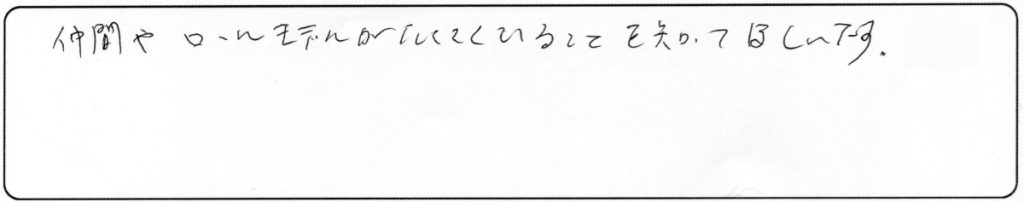 仲間や ロールモデルがたくさんいることを知ってほしいです.